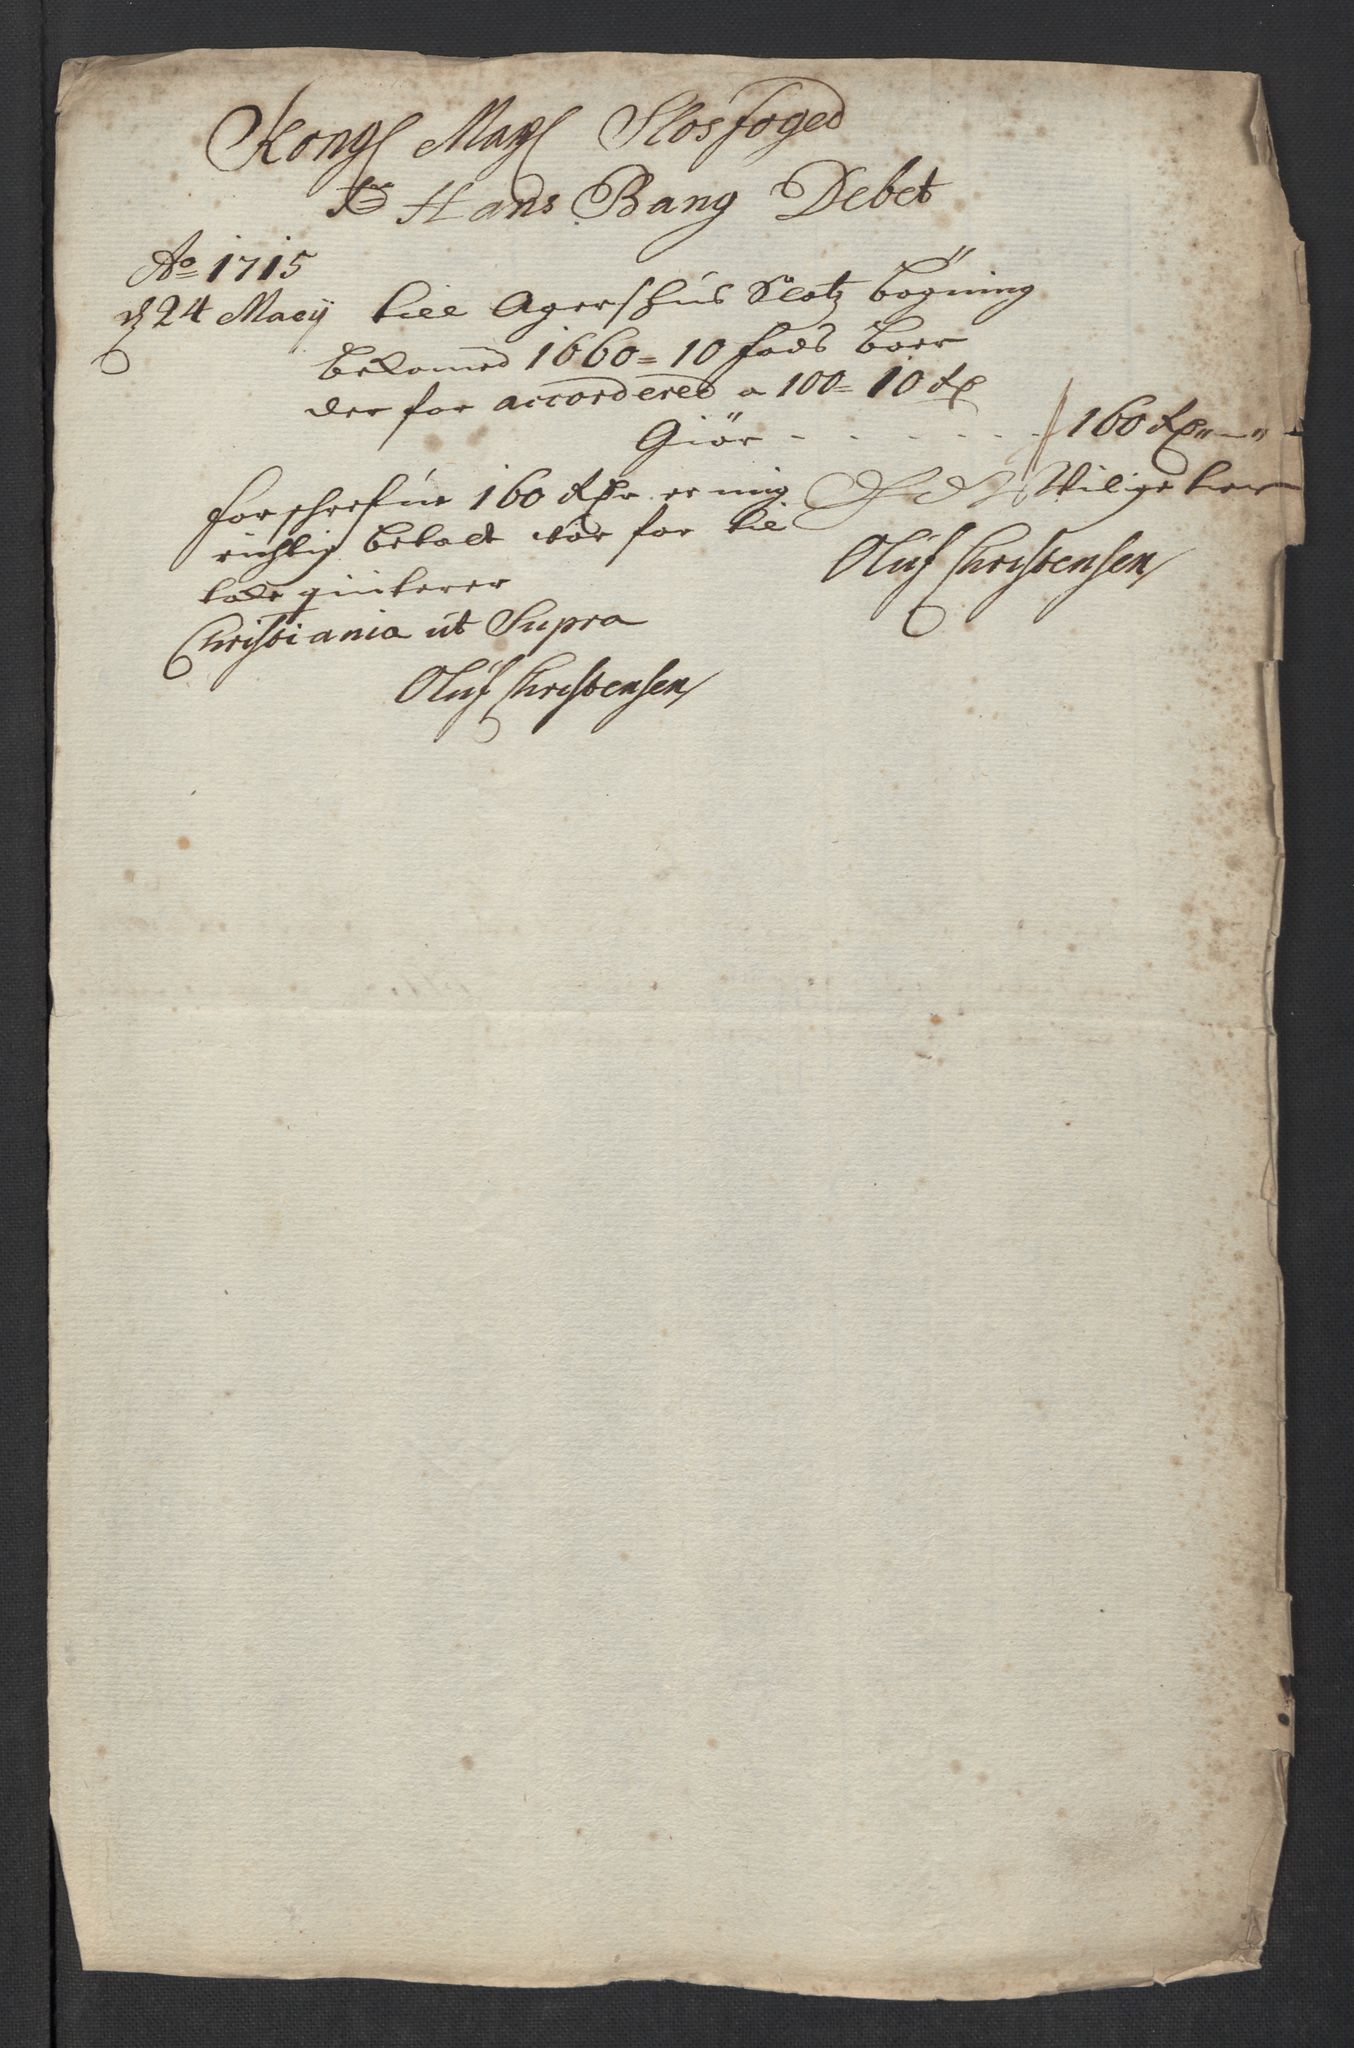 Kongl Mayl Slosfoged
Sr Hans Bang Debet
Ao 1715
d 24 Maey till Agershuus Slotz bögning
bekomed 1660 = 10 fods boer
der for accordered a 100 = 10 Rd
Giör - - - - - - - 160 Rdr - "
forschrefne 160 Rdr er mig
richtig betalt vor for til
tale quiterer
Christiania ut Supra
Oluf Christensen
D Vilige tiener
Oluf Christensen